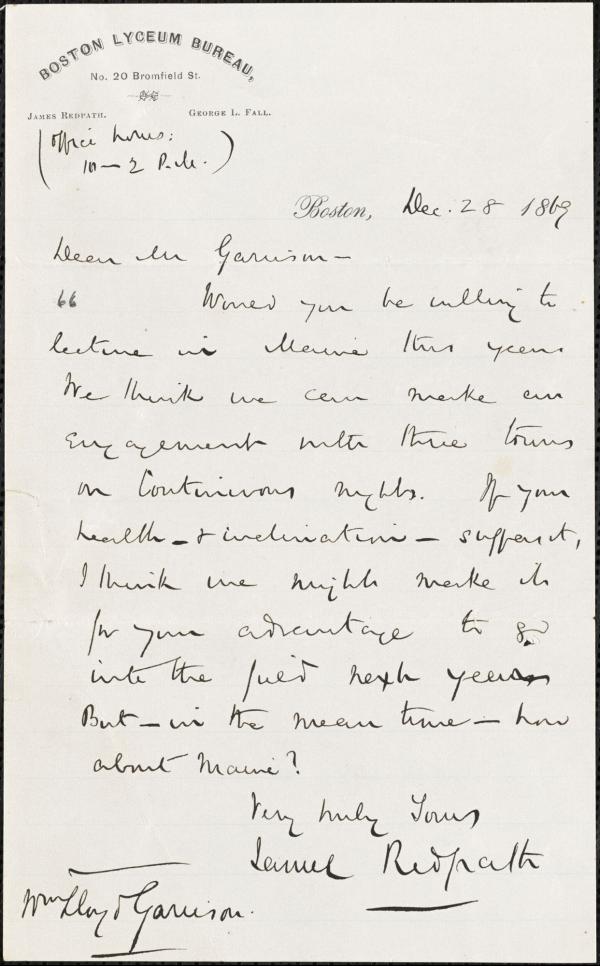 BOSTON LYCEUM BUREAU,
No. 20 Bromfield St.
JAMES REDPATH. GEORGE L. FALL.
(Office hours:
10 — 2 P.M.)
Boston, Dec. 28 1869
Dear Mr Garrison —
66 Would you be willing to
lecture in Maine this year
We think we can make an
engagement with three towns
on continuous nights. If your
health — & inclination — support,
I think we might make it
for your advantage to go
into the field next year
But — in the mean time — how
about Maine?
Very truly Yours
James Redpath
Wm Lloyd Garrison.